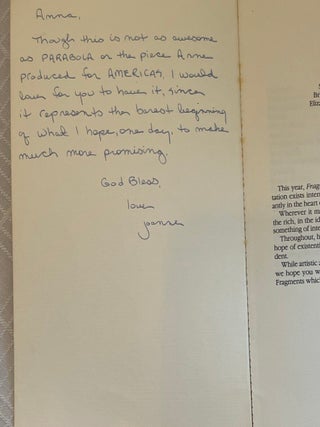 Anna,
Though this is not as awesome
as PARABOLA or the piece Anne
produced for AMERICAS, I would
love for you to have it, since
it represents the barest beginning
of what I hope, one day, to make
much more promising.
God Bless,
love
Joanne
Br
Eliz
This year, Frag
tation exists inter
antly in the heart o
Wherever it m
the rich, in the id
something of inte
Throughout, h
hope of existenti
dent.
While artistic a
we hope you w
Fragments whic